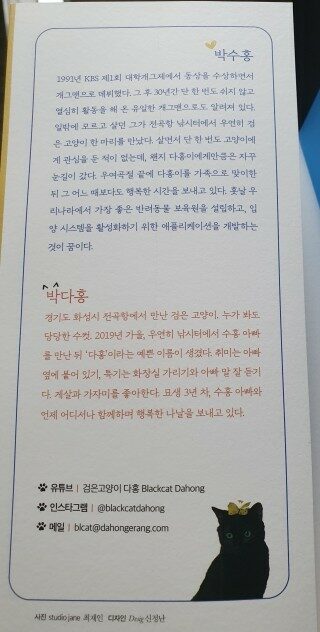 박수홍
1993년 KBS 제1회 대학개그제에서 동상을 수상하면서
개그맨으로 데뷔했다. 그 후 30년간 단 한 번도 쉬지 않고
열심히 활동을 해 온 유일한 개그맨으로도 알려져 있다.
일밖에 모르고 살던 그가 전곡항 낚시터에서 우연히 검
은 고양이 한 마리를 만났다. 살면서 단 한 번도 고양이에
게 관심을 둔 적이 없는데, 왠지 다홍이에게만큼은 자꾸
눈길이 갔다. 우여곡절 끝에 다홍이를 가족으로 맞이한
뒤 그 어느 때보다도 행복한 시간을 보내고 있다. 훗날 우
리나라에서 가장 좋은 반려동물 보육원을 설립하고, 입
양 시스템을 활성화하기 위한 애플리케이션을 개발하는
것이 꿈이다.
박다홍
경기도 화성시 전곡항에서 만난 검은 고양이. 누가 봐도
당당한 수컷. 2019년 가을, 우연히 낚시터에서 수홍 아빠
를 만난 뒤 '다홍'이라는 예쁜 이름이 생겼다. 취미는 아빠
옆에 붙어 있기, 특기는 화장실 가리기와 아빠 말 잘 듣기
다. 게살과 가자미를 좋아한다. 묘생 3년 차, 수홍 아빠와
언제 어디서나 함께하며 행복한 나날을 보내고 있다.
유튜브 | 검은고양이 다홍 Blackcat Dahong
인스타그램 | @blackcatdahong
메일 | blcat@dahongerang.com
사진 studio jane 최재인 디자인 Desig 신정난